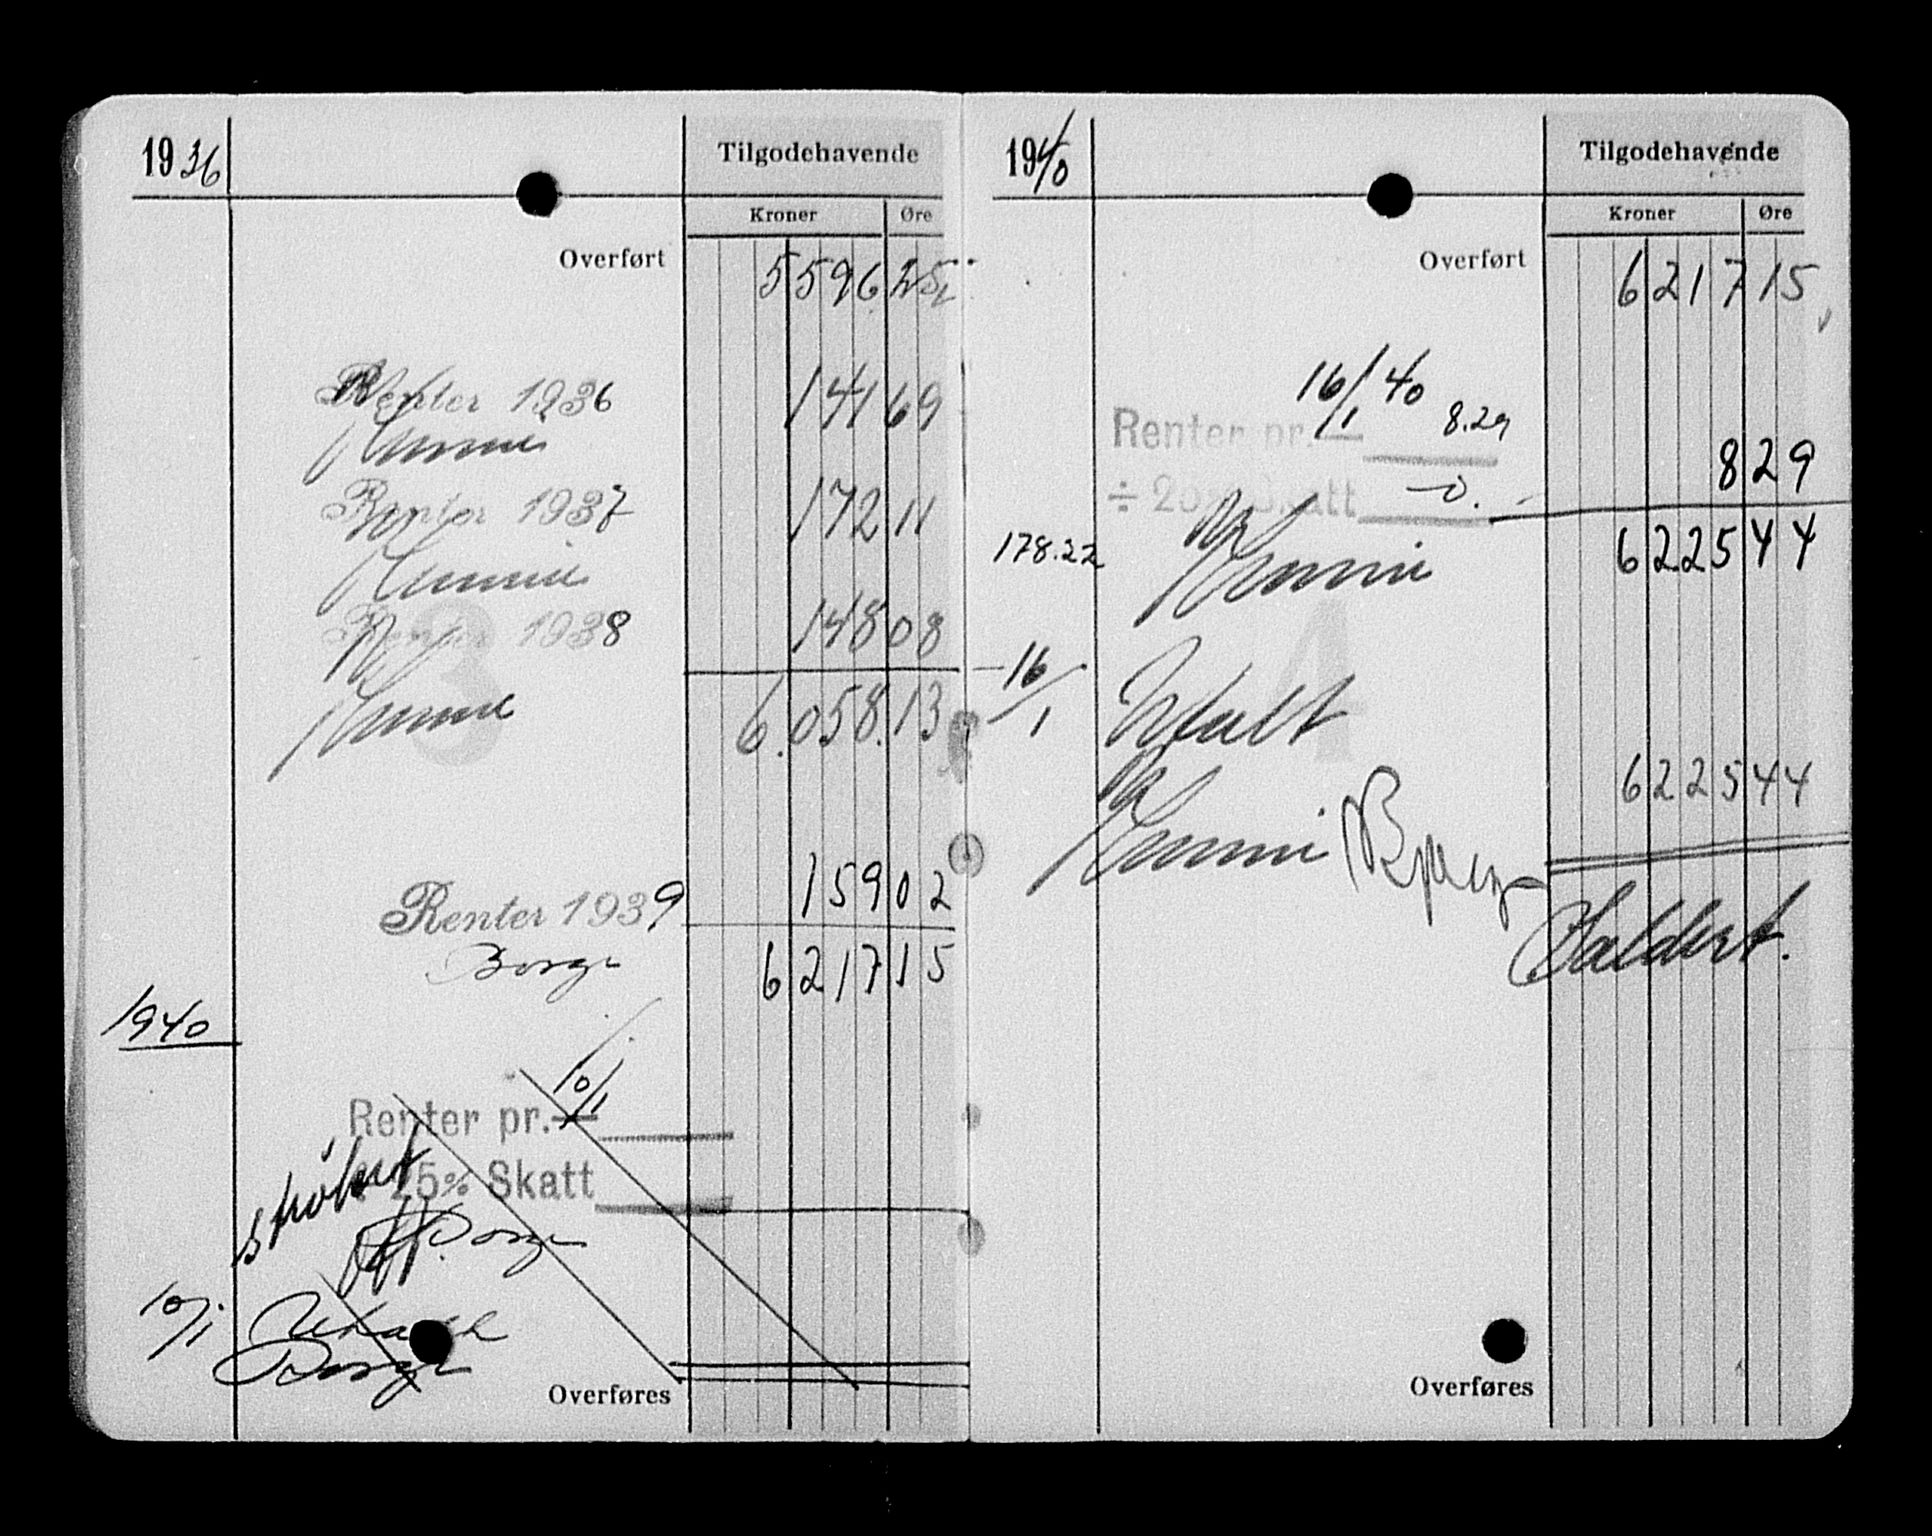 1936
Tilgodehavende
Kroner Øre
Overført 5596 25
Renter 1936 141 69
Renter 1937 172 11
Renter 1938 148 08
3
6.058.13
Renter 1939 159 02
Borge 6217 15
1940
Renter pr. 10/1
25% Skatt
Borge
10/1
Borge
Overføres
1940
Tilgodehavende
Kroner Øre
Overført 6217 15
16/1 40
Renter pr. 8.29
8 29
÷ 20% Skatt
178.22
6225 44
16/1
4
6225 44
Saldert.
Overføres